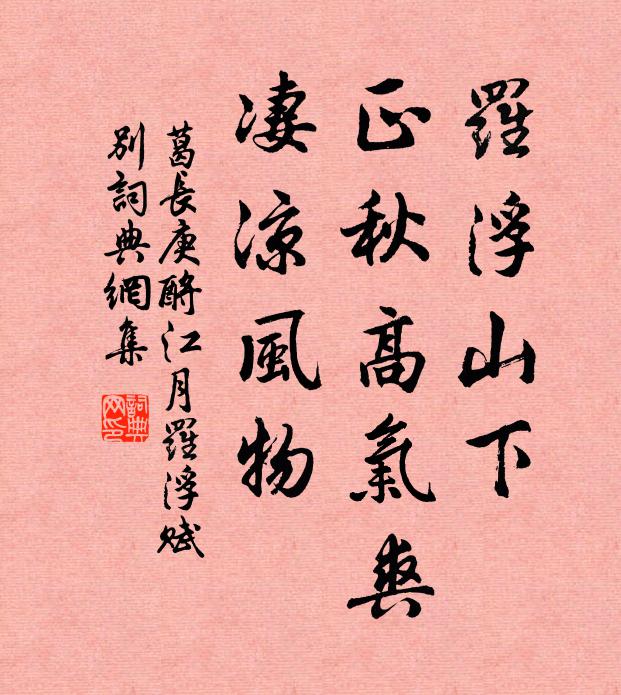 羅浮山下
正秋高氣爽
凄凉風物
葛長庚酹江月羅浮賦
別詞典網集
詞典
网印